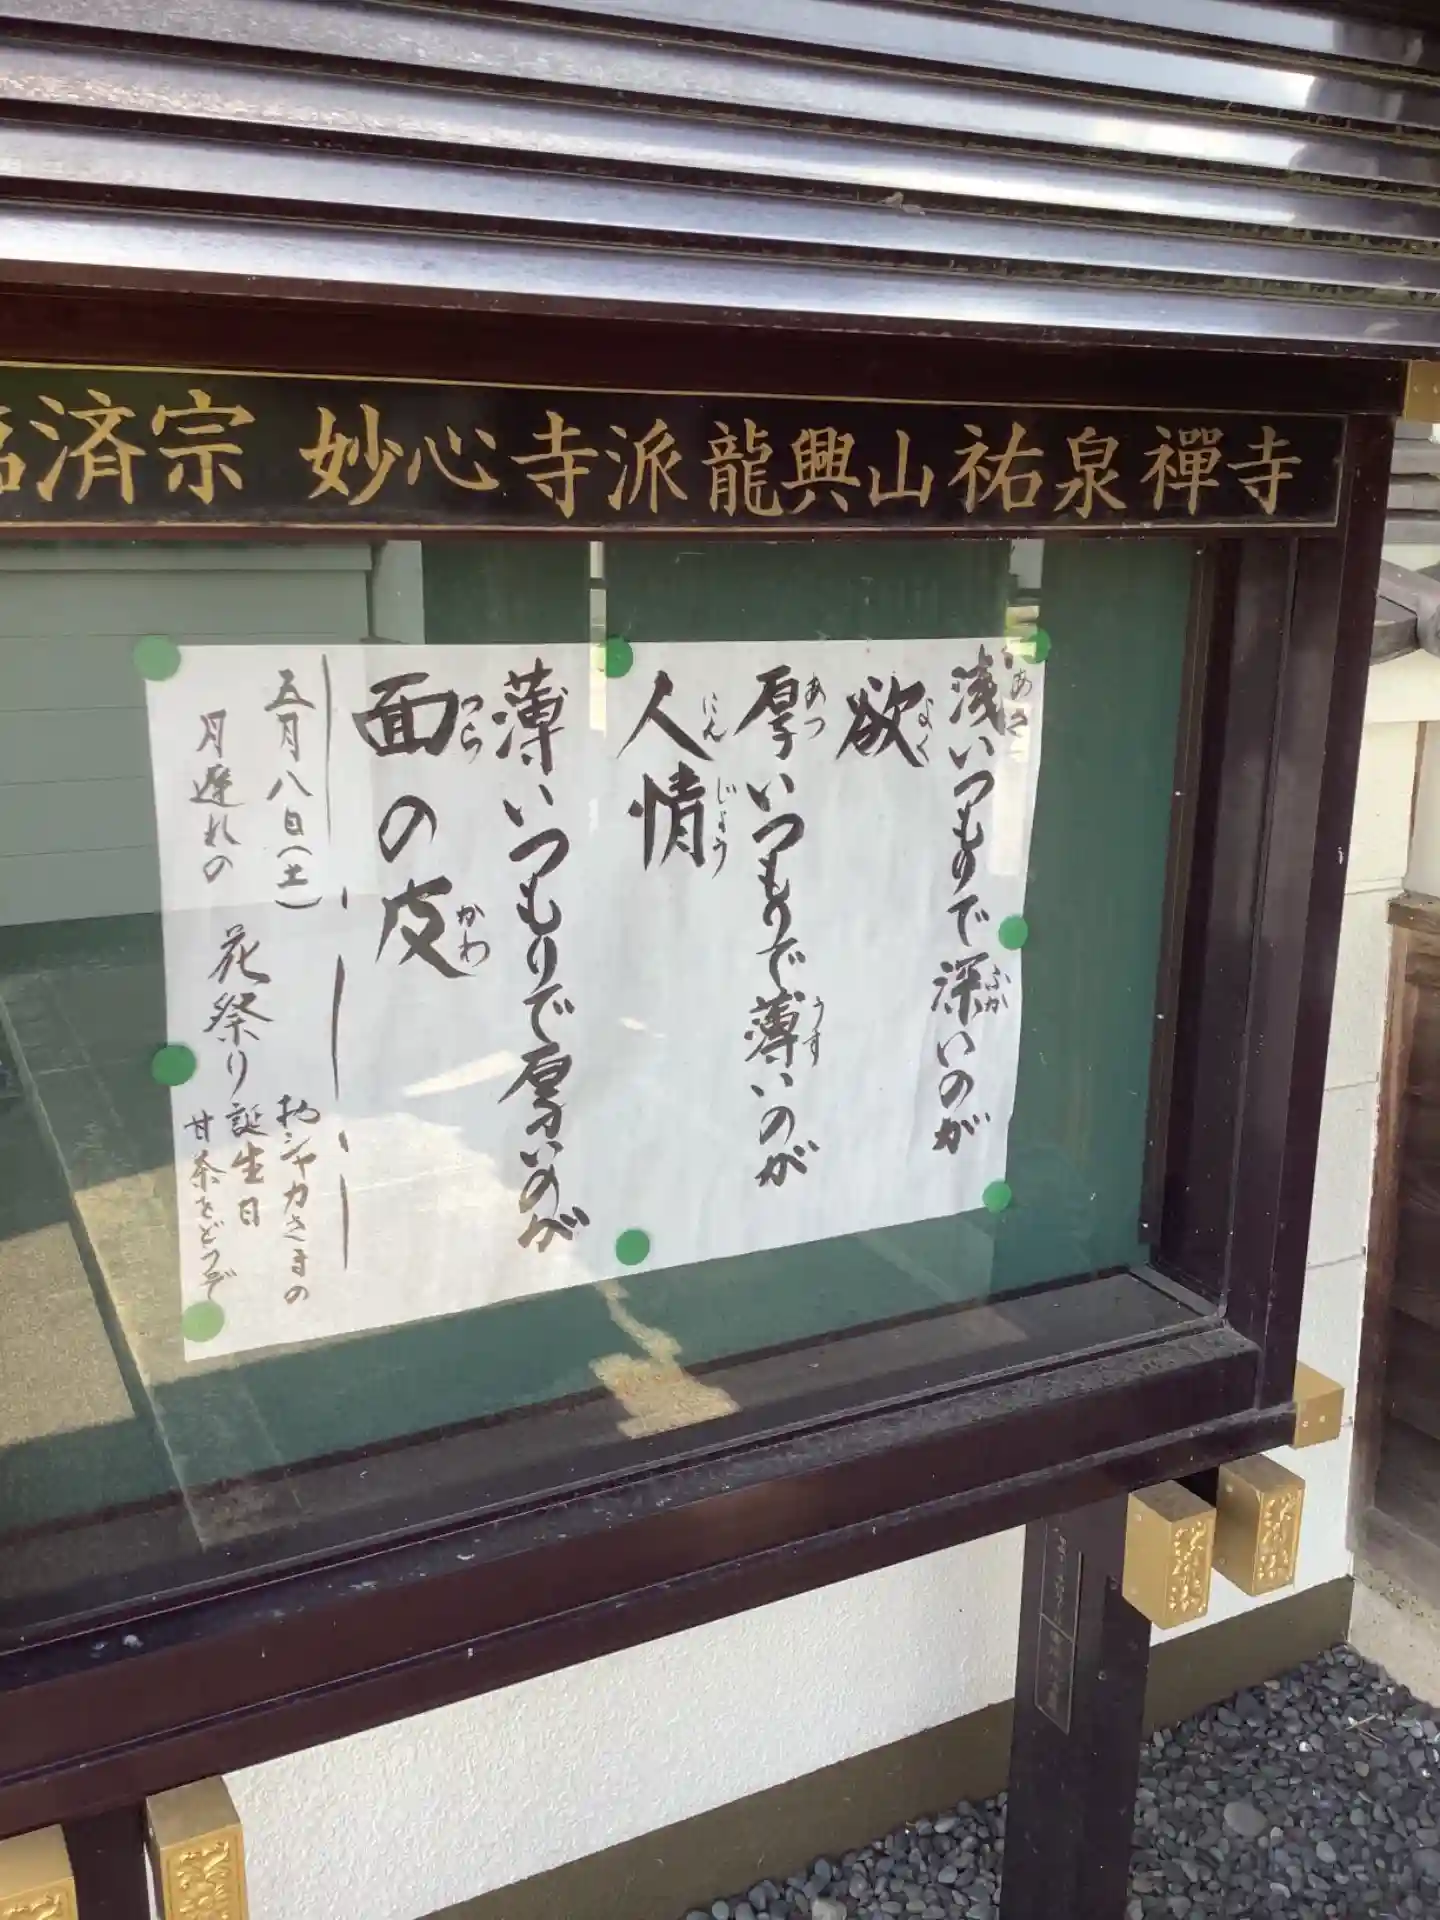 済宗 妙心寺派龍興山祐泉禪寺
浅いつもりで深いのが
あさ
ふか
欲
よく
厚いつもりで薄いのが
あつ
うす
人情
にんじょう
薄いつもりで厚いのが
面の皮
つら
かわ
五月八日(土)
月遅れの 花祭り
おシャカさまの
誕生日
甘茶をどうぞ